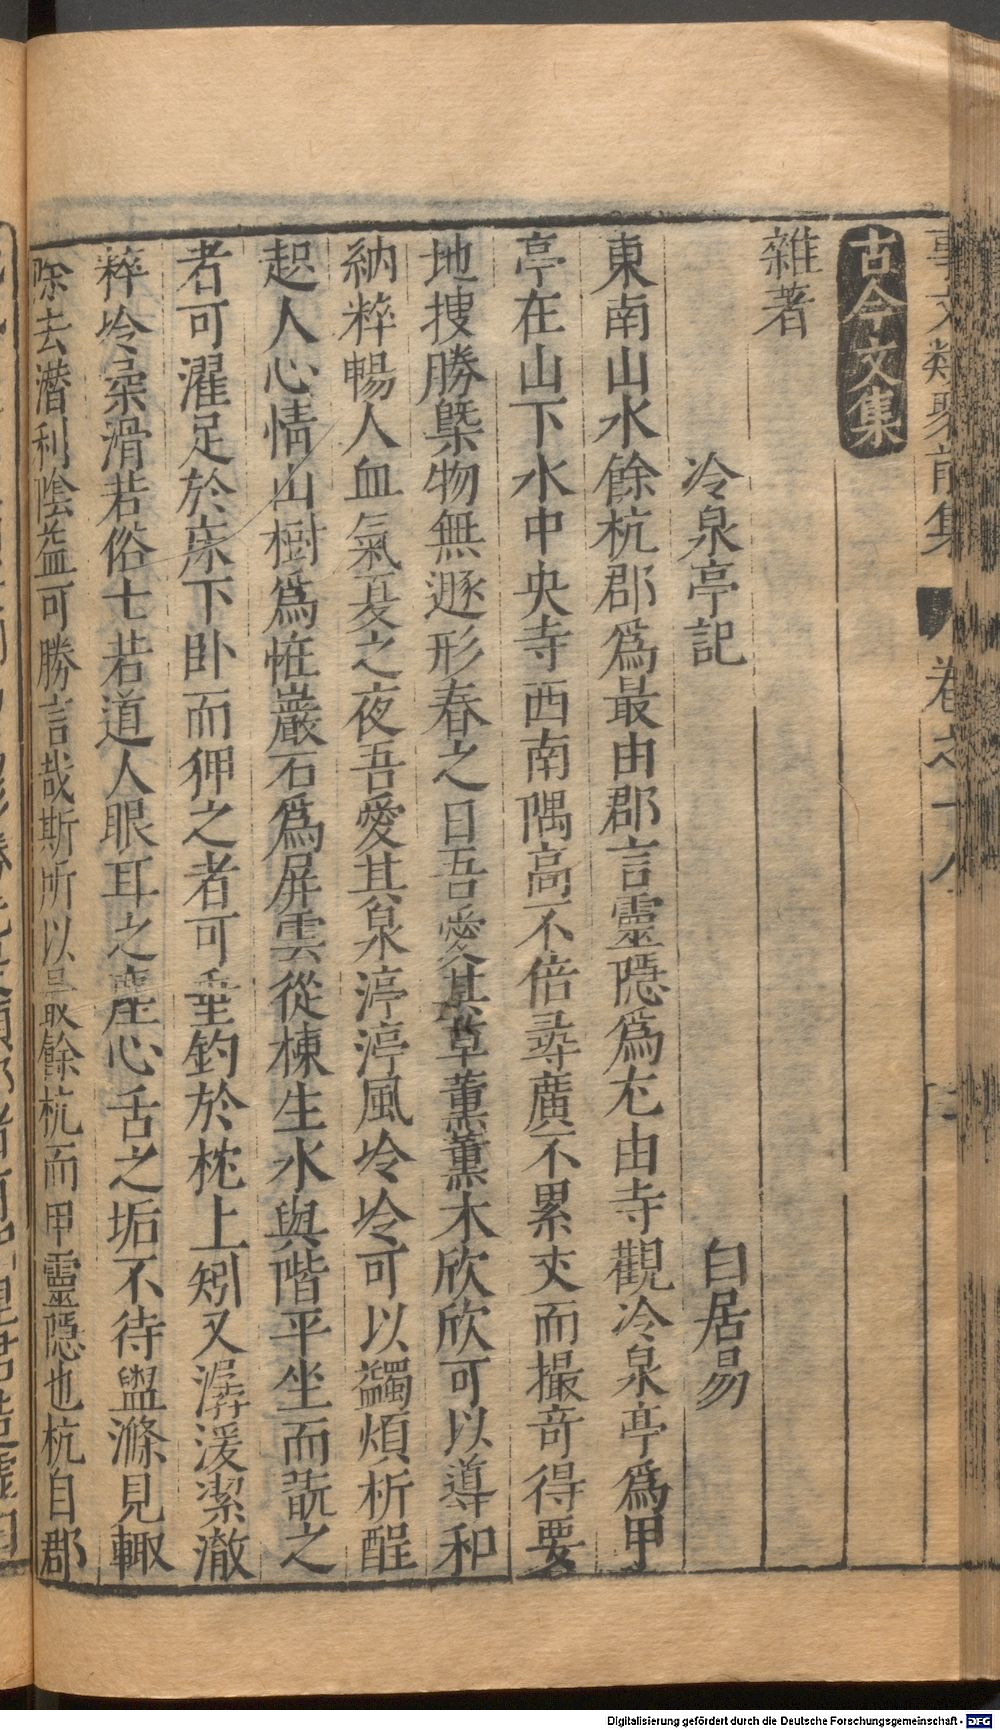 事文類聚前集 卷之十八
古今文集
雜著
冷泉亭記 白居易
東南山水餘杭郡爲最由郡言靈隱爲尤由寺觀冷泉亭爲甲
亭在山下水中央寺西南隅高不倍尋廣不累丈而撮竒得要
地搜勝槩物無遯形春之日吾愛其草薫薫木欣欣可以導和
納粹暢人血氣夏之夜吾愛其泉渟渟風泠泠可以蠲煩析酲
起人心情山樹爲帷巖石爲屏雲從棟生水與階平坐而翫之
者可濯足於牀下卧而狎之者可垂釣於枕上矧又潺湲潔澈
粹冷柔滑若俗士若道人眼耳之塵心舌之垢不待盥滌見輙
除去潜利隂益可勝言哉斯所以最餘杭而甲靈隱也杭自郡
Digitalisierung gefördert durch die Deutsche Forschungsgemeinschaft - DFG